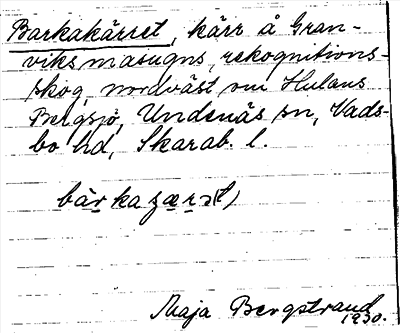 Barkakärret, kärr å Gran-
viks masugns rekognitions-
skog nordväst om Hulans
Bergsjö, Undenäs sn, Vads-
bo hd, Skarab. l.
Maja Bergstrand
1930.